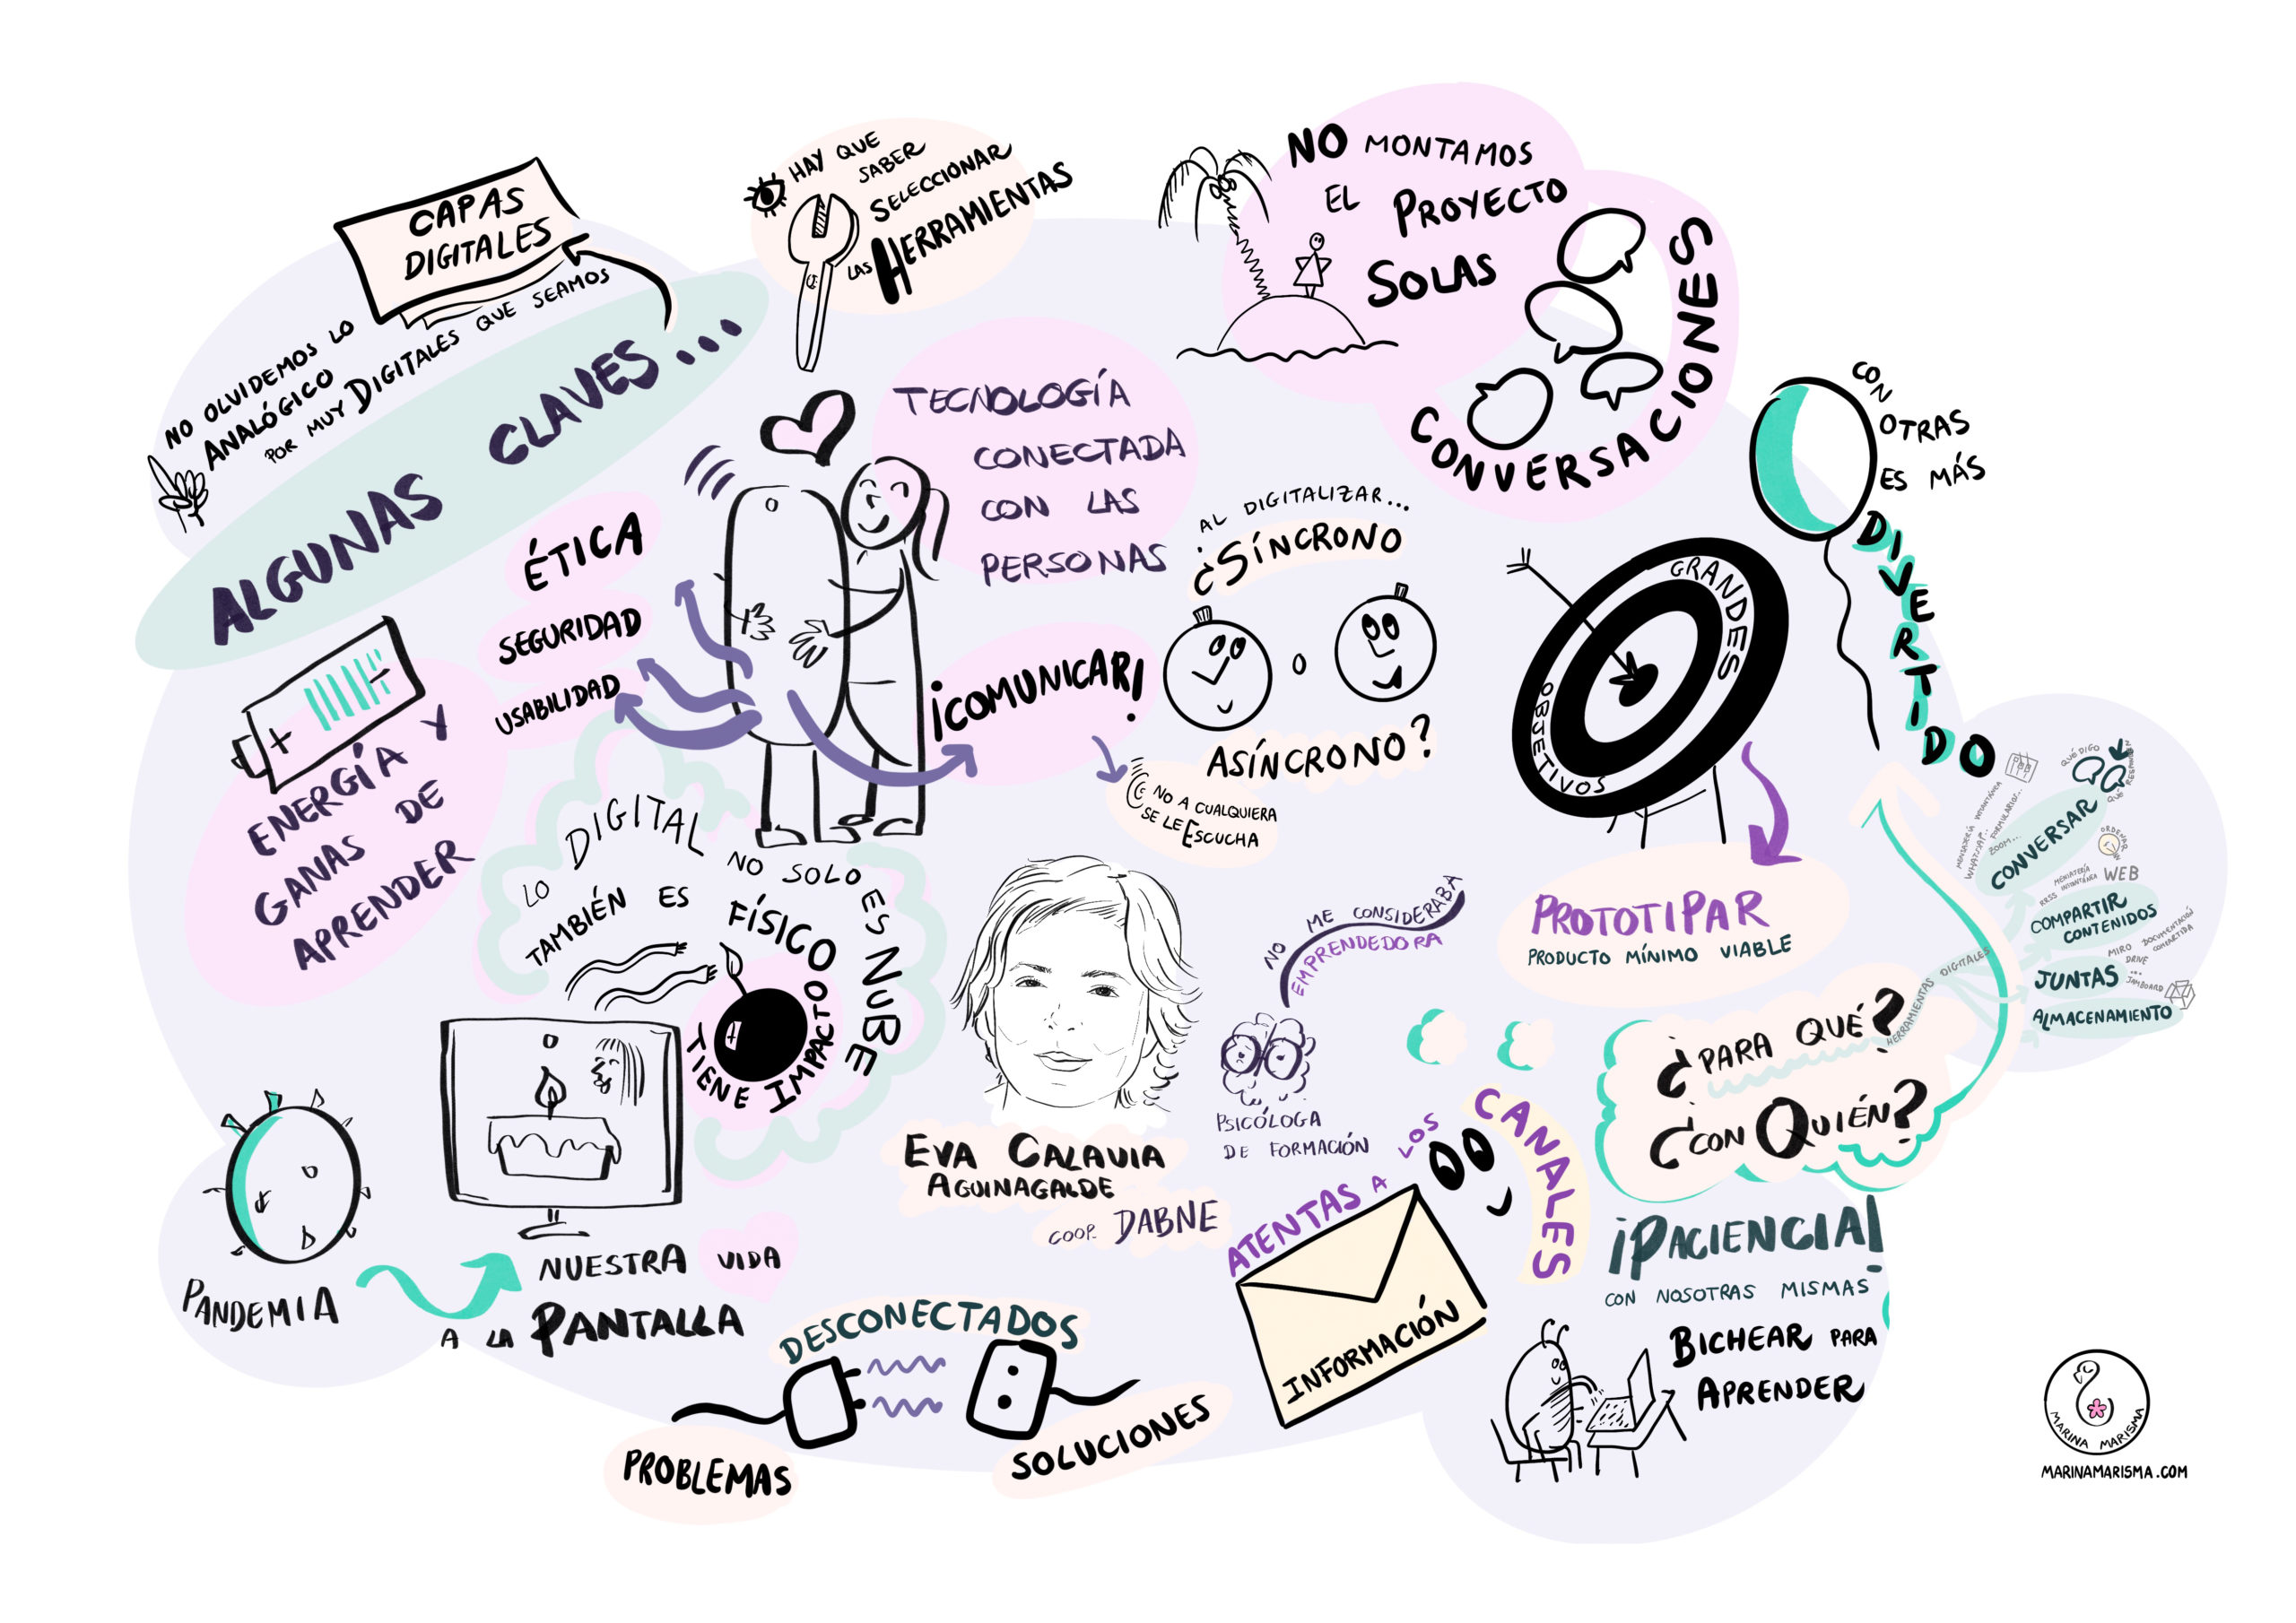 CAPAS
DIGITALES
NO OLVIDEMOS LO
ANALÓGICO
POR MUY DIGITALES QUE SEAMOS
ALGUNAS CLAVES...
HAY QUE
SABER
SELECCIONAR
LAS HERRAMIENTAS
NO MONTAMOS
EL PROYECTO
SOLAS
CONVERSACIONES
CON
OTRAS
ES MÁS
DIVERTIDO
TECNOLOGÍA
CONECTADA
CON LAS
PERSONAS
ÉTICA
SEGURIDAD
USABILIDAD
¡COMUNICAR!
NO A CUALQUIERA
SE LE ESCUCHA
AL DIGITALIZAR...
¿SÍNCRONO
O
ASÍNCRONO?
GRANDES
OBJETIVOS
PROTOTIPAR
PRODUCTO MÍNIMO VIABLE
ENERGÍA Y
GANAS DE
APRENDER
LO DIGITAL NO SOLO ES NUBE
TAMBIÉN ES FÍSICO
TIENE IMPACTO
PANDEMIA
NUESTRA VIDA
A LA PANTALLA
EVA CALAVIA
AGUINAGALDE
COOP. DABNE
NO ME CONSIDERABA
EMPRENDEDORA
PSICÓLOGA
DE FORMACIÓN
DESCONECTADOS
PROBLEMAS
SOLUCIONES
ATENTAS A LOS
CANALES
INFORMACIÓN
¿PARA QUÉ?
¿CON QUIÉN?
HERRAMIENTAS DIGITALES
QUÉ DIGO
QUÉ RESPONDEN
CONVERSAR
MENSAJERÍA INSTANTÁNEA
WHATSAP...
ZOOM...
FORMULARIOS...
ORDENAR
WEB
RRSS
MENSAJERÍA
INSTANTÁNEA
COMPARTIR
CONTENIDOS
MIRO
DOCUMENTACIÓN
COMPARTIDA
DRIVE
...
JAMBOARD
JUNTAS
ALMACENAMIENTO
¡PACIENCIA!
CON NOSOTRAS MISMAS
BICHEAR PARA
APRENDER
MARINA MARISMA
MARINAMARISMA.COM